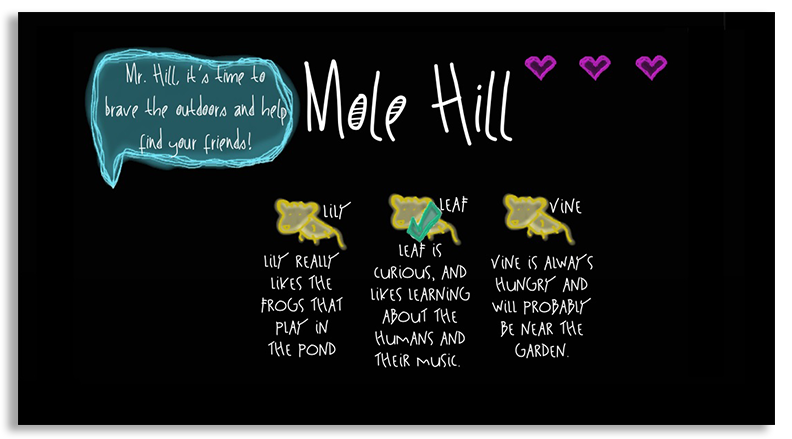 Mr. Hill, it's time to
brave the outdoors and help
find your friends!
Mole Hill
LILY
LILY REALLY
LIKES THE
FROGS THAT
PLAY IN
THE POND
LEAF
LEAF IS
CURIOUS, AND
LIKES LEARNING
ABOUT THE
HUMANS AND
THEIR MUSIC.
VINE
VINE IS ALWAYS
HUNGRY AND
WILL PROBABLY
BE NEAR THE
GARDEN.